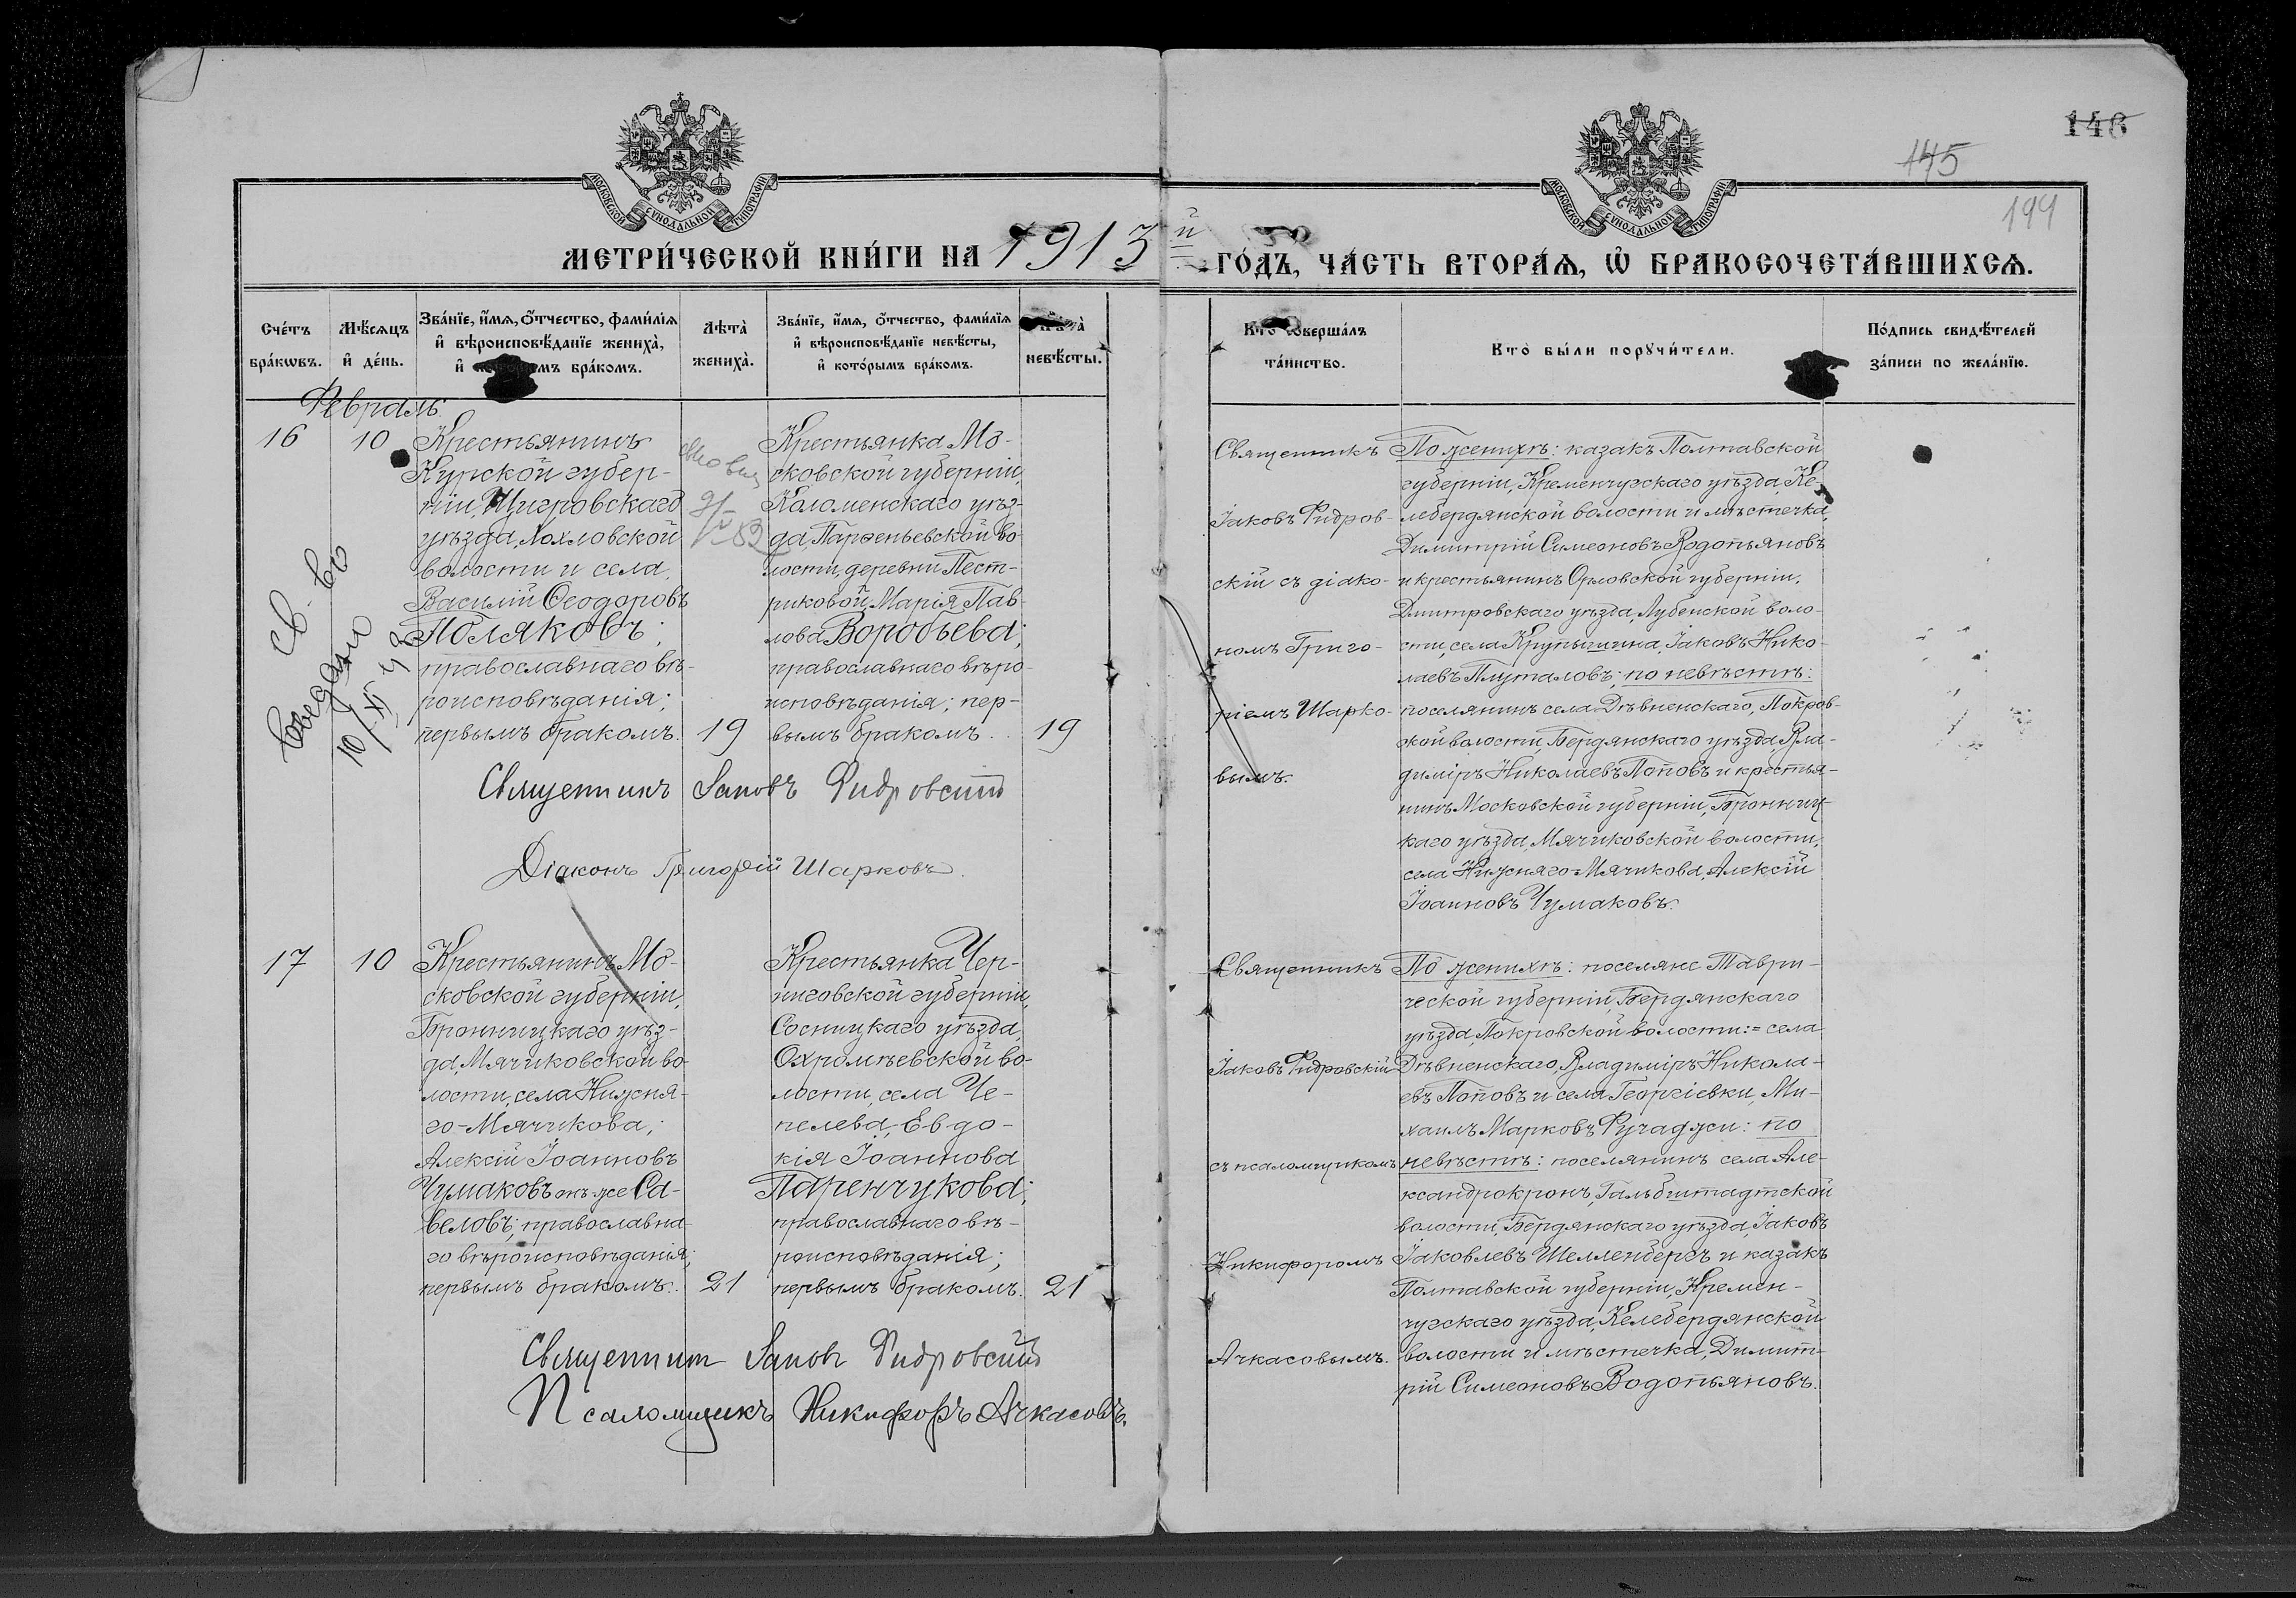 146
145
194
МОСКОВСКОЙ СѴНОДАЛЬНОЙ ТИПОГРАФІИ
МОСКОВСКОЙ СѴНОДАЛЬНОЙ ТИПОГРАФІИ
МЕТРИ́ЧЕСКОЙ КНИ́ГИ НА 1913 й ГО́ДЪ, ЧА́СТЬ ВТОРА́Ѧ, Ѽ БРАКОСОЧЕТА́ВШИХСѦ.
Сче́тъ
бра́кѡвъ.
Мѣ́сяцъ
и҆ де́нь.
Зва́нїе, и҆́мѧ, ѻ҆́тчество, фами́лїѧ
и҆ вѣроисповѣ́данїе жениха̀,
и҆ кото́рымъ бра́комъ.
Лѣта̀
жениха̀.
Зва́нїе, и҆́мѧ, ѻ҆́тчество, фами́лїѧ
и҆ вѣроисповѣ́данїе невѣ́сты,
и҆ кото́рымъ бра́комъ.
Лѣта̀
невѣ́сты.
Кто̀ соверша́лъ
та́инство.
Кто̀ бы́ли порꙋчи́тели.
По́дпись свидѣ́телей
за́писи по жела́нїю.
Февраль
16
10
Крестьянинъ
Курской губер-
ніи, Щигровскаго
уѣзда, Хохловской
волости и села,
Василій Ѳеодоровъ
Поляковъ;
православнаго вѣ-
роисповѣданія;
первымъ бракомъ.
19
Крестьянка Мо-
сковской губерніи,
Коломенскаго уѣз-
да, Парѳеньевской во-
лости, деревни Пест-
риковой, Марія Пав-
лова Воробьева;
православнаго вѣро-
исповѣданія; пер-
вымъ бракомъ.
19
св-во
выдано
10/XI 43
Священникъ Іаковъ Фидровскій
Діаконъ Григорій Шарковъ.
Священникъ
Іаковъ Фидров-
скій съ діако-
номъ Григо-
ріемъ Шарко-
вымъ.
По женихѣ: казакъ Полтавской
губерніи, Кременчугскаго уѣзда, Ке-
лебердянской волости и мѣстечка,
Димитрій Симеоновъ Водопьяновъ
и крестьянинъ Орловской губерніи,
Дмитровскаго уѣзда, Лубенской воло-
сти, села Крупышина, Іаковъ Нико-
лаевъ Плуталовъ; по невѣстѣ:
поселянинъ села Дѣвненскаго, Покров-
ской волости, Бердянскаго уѣзда, Вла-
диміръ Николаевъ Поповъ и крестья-
нинъ Московской губерніи, Бронниц-
каго уѣзда, Мячиковской волости,
села Нижняго-Мячикова, Алексій
Іоанновъ Чумаковъ.
17
10
Крестьянинъ Мо-
сковской губерніи,
Бронницкаго уѣз-
да, Мячиковской во-
лости, села Нижня-
го-Мячикова;
Алексій Іоанновъ
Чумаковъ онъ же Са-
веловъ; православна-
го вѣроисповѣданія;
первымъ бракомъ.
21
Крестьянка Чер-
ниговской губерніи,
Сосницкаго уѣзда,
Охромѣевской во-
лости, села Че-
пелева, Евдо-
кія Іоаннова
Паренчукова;
православнаго вѣ-
роисповѣданія;
первымъ бракомъ.
21
Священникъ Іаковъ Фидровскій
Псаломщикъ Никифоръ Ачкасовъ.
Священникъ
Іаковъ Фидровскій
съ псаломщикомъ
Никифоромъ
Ачкасовымъ.
По женихѣ: поселяне Таври-
ческой губерніи, Бердянскаго
уѣзда, Покровской волости:= села
Дѣвненскаго, Владиміръ Никола-
евъ Поповъ и села Георгіевки, Ми-
хаилъ Марковъ Фучаджи: по
невѣстѣ: поселянинъ села Але-
ксандрокронъ, Гальбштадтской
волости, Бердянскаго уѣзда, Іаковъ
Іаковлевъ Шелленбергъ и казакъ
Полтавской губерніи, Кремен-
чугскаго уѣзда, Келебердянской
волости и мѣстечка, Димит-
рій Симеоновъ Водопьяновъ.